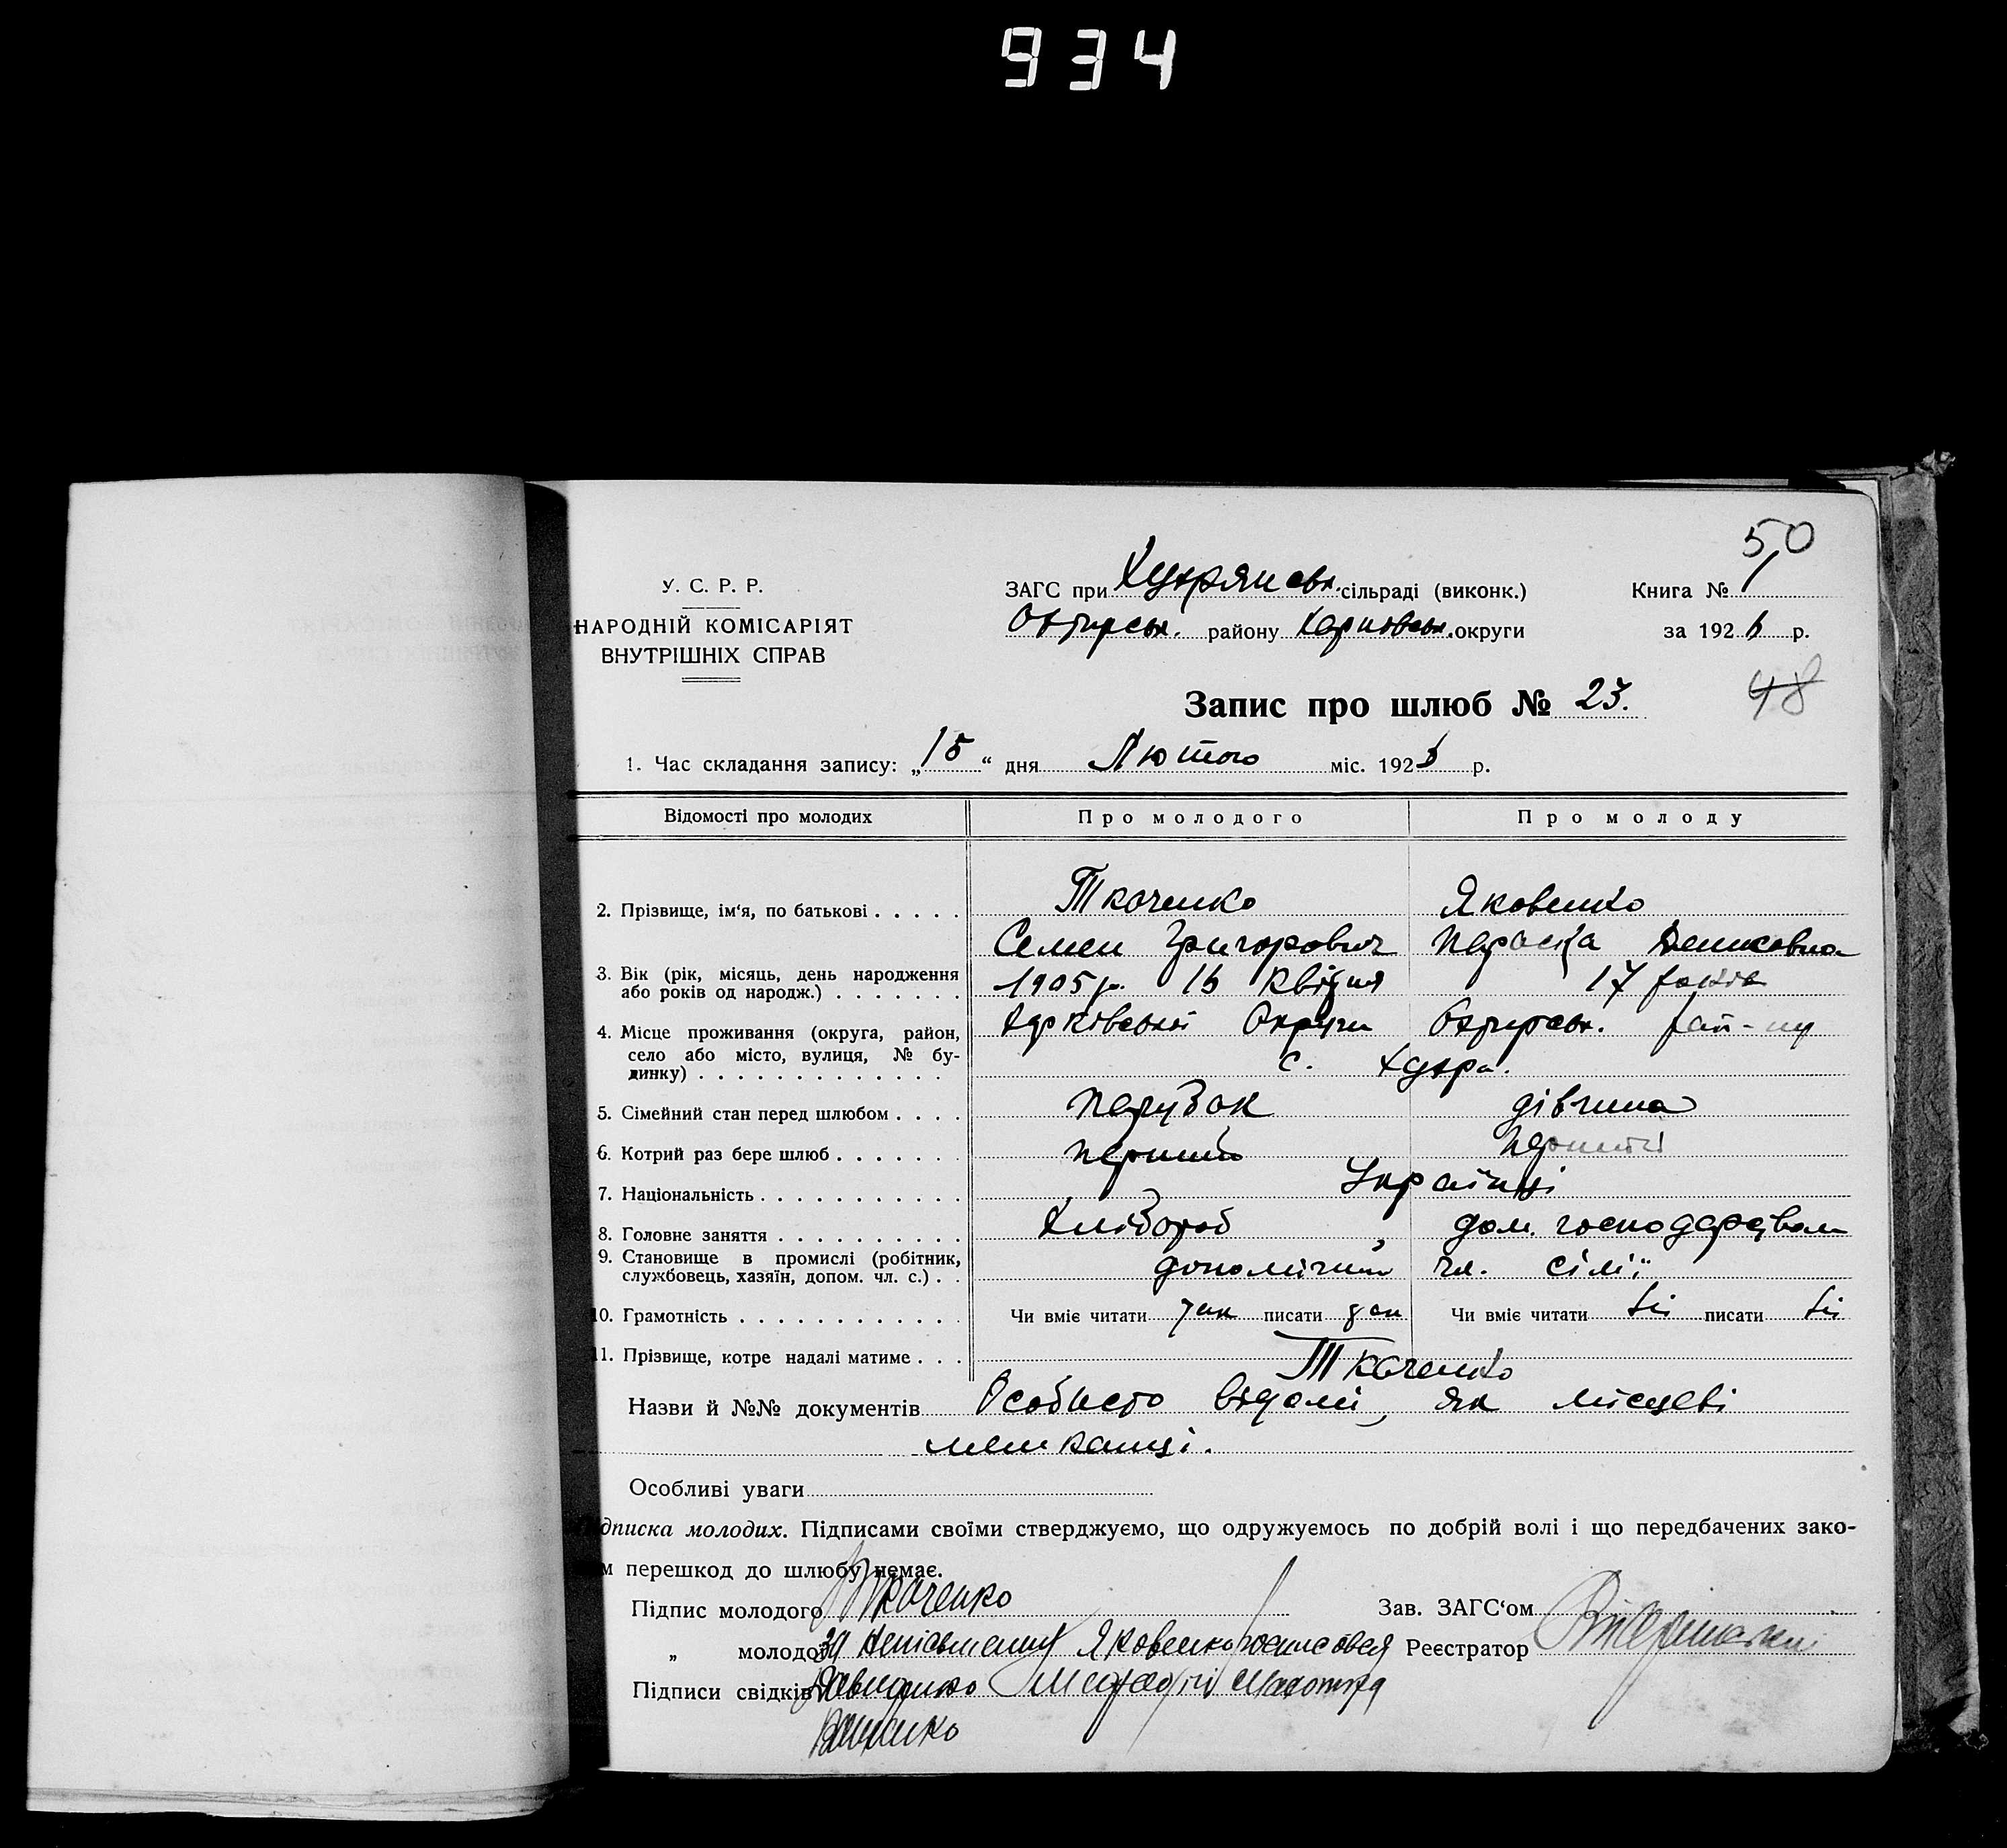 934
50
У. С. Р. Р.
НАРОДНІЙ КОМІСАРІЯТ
ВНУТРІШНІХ СПРАВ
ЗАГС при Хухрянськ. сільраді (виконк.)
Охтирськ. району Харківськ. округи
Книга №
за 1926 р.
Запис про шлюб № 23.
48
1. Час складання запису: „15“ дня Лютого міс. 1926 р.
Відомості про молодих Про молодого Про молоду
2. Прізвище, ім‘я, по батькові . . . . . Ткаченко Яковенко
Семен Григорович Параска Денисовна
3. Вік (рік, місяць, день народження
або років од народж.) . . . . . . . 1905 р. 16 Квітня 17 років
4. Місце проживання (округа, район, Харківської Округи Охтирськ. рай-ну
село або місто, вулиця, № бу-
динку) . . . . . . . . . . . . . с. Хухра.
5. Сімейний стан перед шлюбом . . . . парубок дівчина
6. Котрий раз бере шлюб . . . . . . . перший перший
7. Національність . . . . . . . . . . . Українці
8. Головне заняття . . . . . . . . . . Хлібороб, дом. господарством
9. Становище в промислі (робітник,
службовець, хазяїн, допом. чл. с.) . . допомічний чл. сім'ї
10. Грамотність . . . . . . . . . . . . Чи вміє читати так писати так Чи вміє читати ні писати ні
11. Прізвище, котре надалі матиме . . . Ткаченко
Назви й №№ документів Особисто відомі, як місцеві
мешканці.
Особливі уваги
дписка молодих. Підписами своїми стверджуємо, що одружуємось по добрій волі і що передбачених зако-
м перешкод до шлюбу немає.
Підпис молодого Ткаченко Зав. ЗАГС‘ом
„ молодої за неписьменну Яковенко росписався Реєстратор
Підписи свідків Давиденко